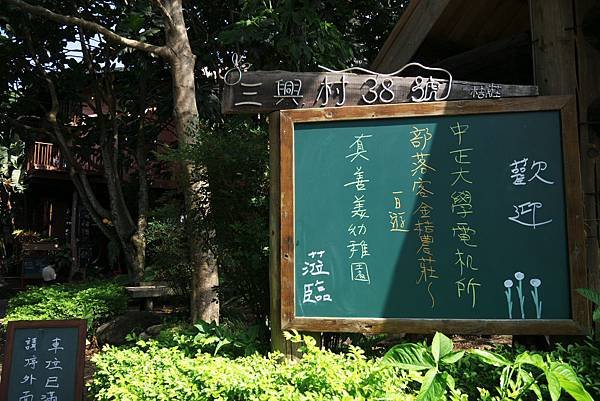 三興村38號
歡迎
中正大學電機所
部落客金桔農莊~
一日遊
真善美幼稚園
蒞臨
車位已滿
請停外面